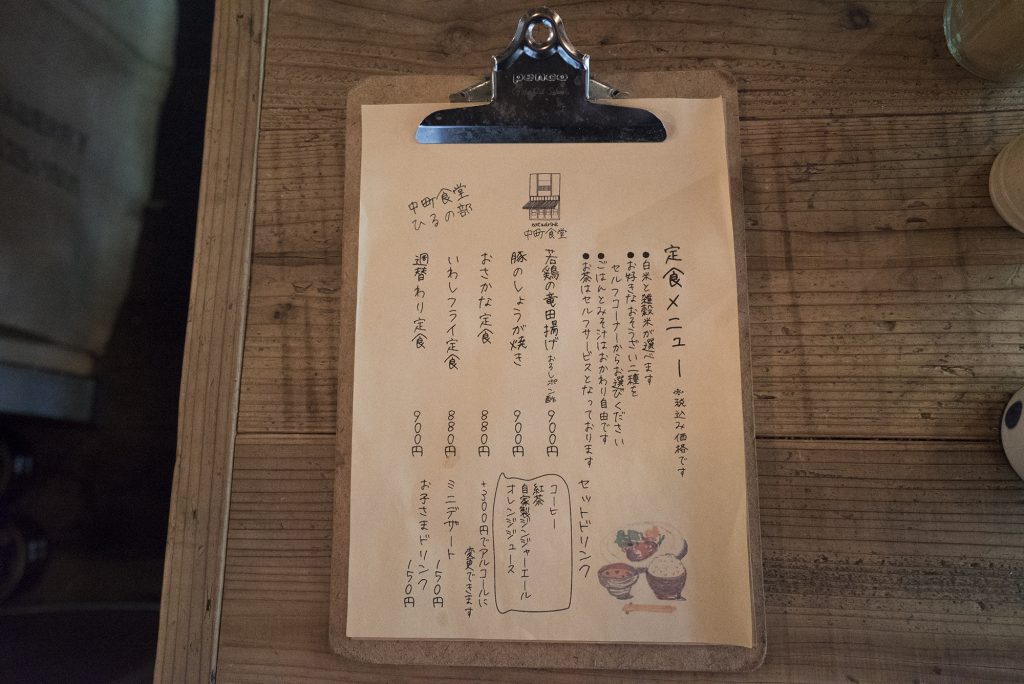 penco
定食メニュー ※税込み価格です
●白米と雑穀米が選べます
●お好きなおそうざい二種を
セルフコーナーからお選びください
●ごはんとみそ汁はおかわり自由です
●お茶はセルフサービスとなっております
若鶏の竜田揚げ おろしポン酢 900円
豚のしょうが焼き 900円
おさかな定食 880円
いわしフライ定食 880円
週替わり定食 900円
中町食堂
中町食堂
ひるの部
セットドリンク
コーヒー
紅茶
自家製ジンジャーエール
オレンジジュース
+300円でアルコールに
変更できます
ミニデザート 150円
お子さまドリンク 150円